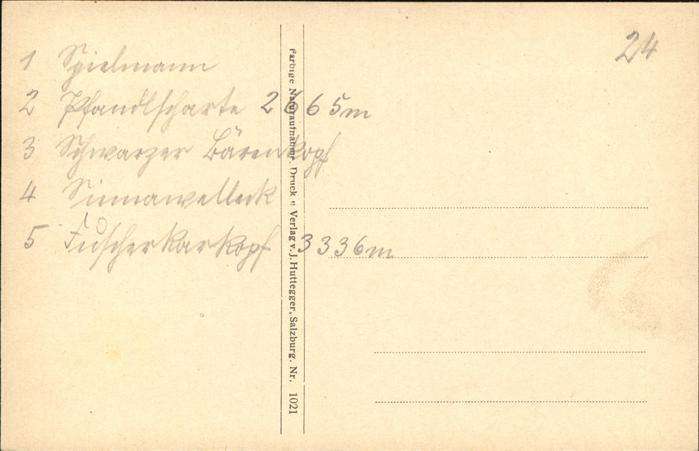 24
1 Spielmann
2 Pfandlscharte 2665m
3 Schwarzer Bärenkopf
4 Sinnawelleck
5 Fuscherkarkopf 3336m
Farbige Naturaufnahme, Druck u. Verlag v. J. Huttegger, Salzburg. Nr. 1021